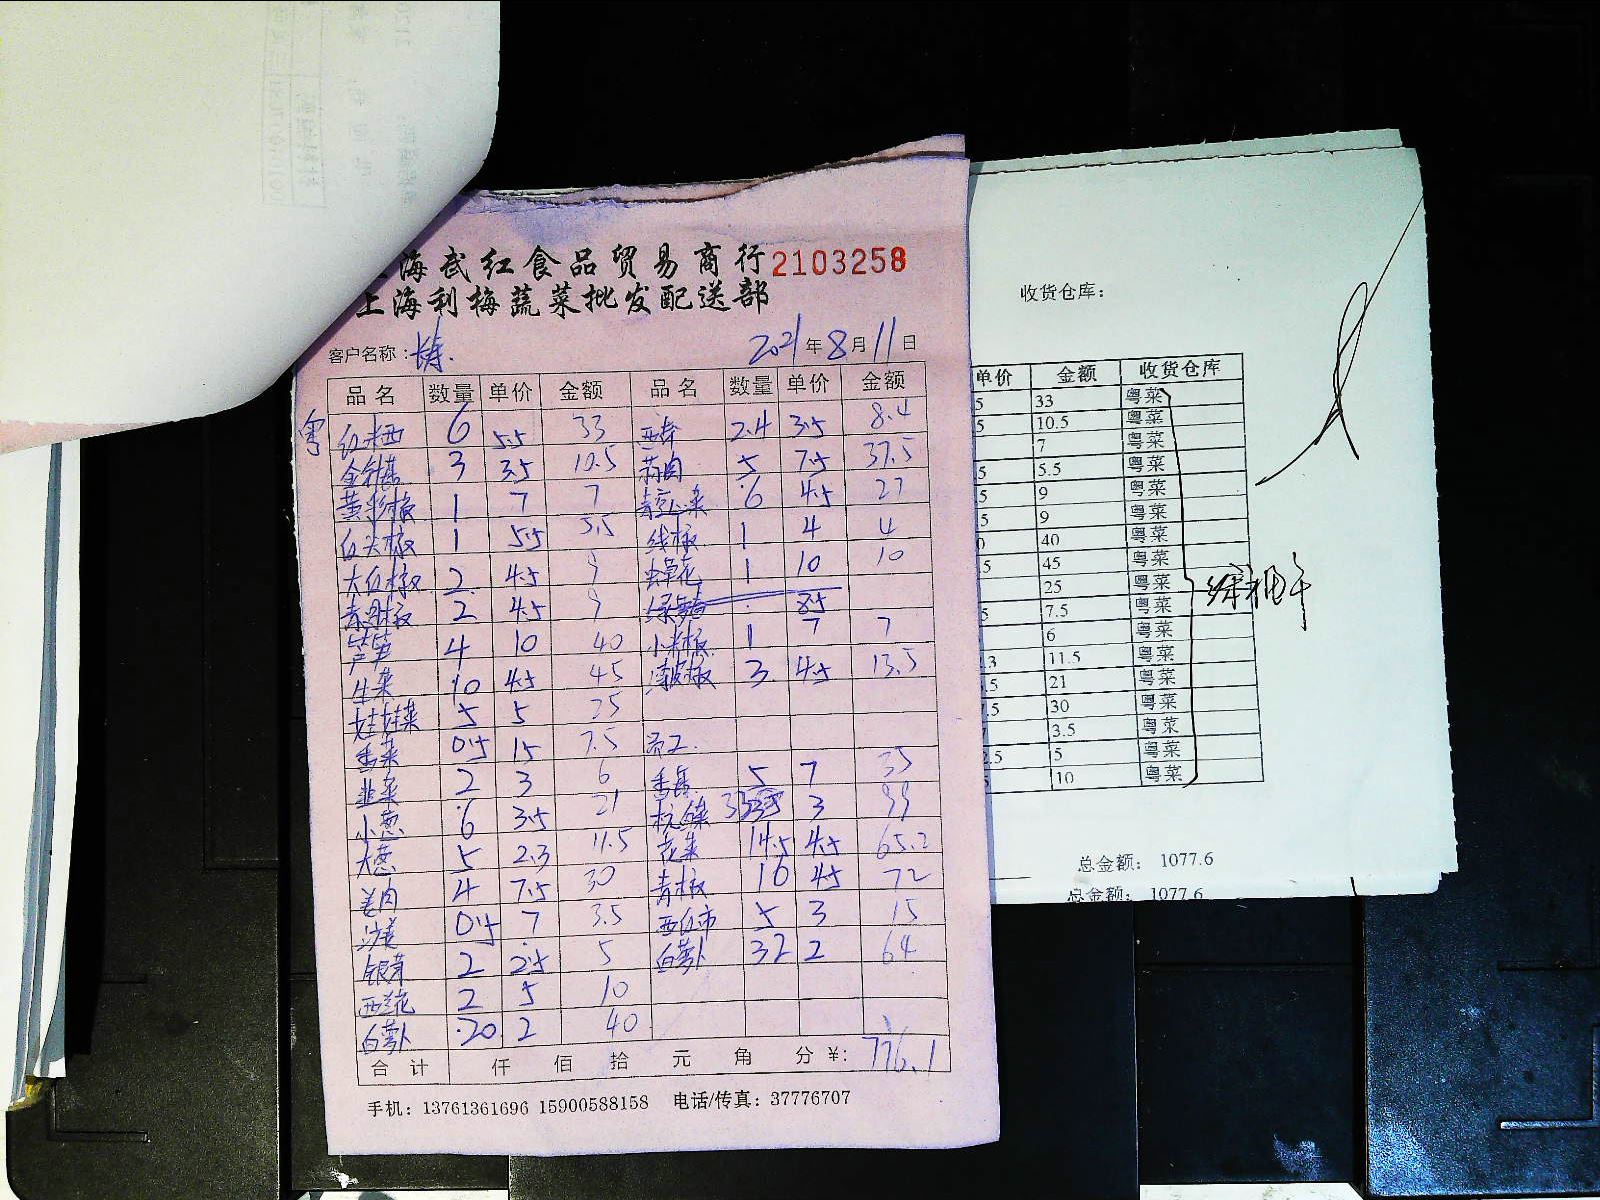 上海武红食品贸易商行 2103258
上海利梅蔬菜批发配送部
客户名称： 2021年8月11日
品名 数量 单价 金额 品名 数量 单价 金额
粤 红米西 6 5.5 33 西芹 2.4 3.5 8.4
金针菇 3 3.5 10.5 蒜肉 5 7.5 37.5
黄彩椒 1 7 7 6 4.5 27
白尖椒 1 5.5 5.5 线椒 1 4 4
大红椒 2 4.5 9 虫草花 1 10 10
青圆椒 2 4.5 9 8.5
芦笋 4 10 40 小米椒 1 7 7
生菜 10 4.5 45 薄皮椒 3 4.5 13.5
娃娃菜 5 5 25
香菜 0.5 15 7.5 员工
韭菜 2 3 6 香干 5 7 35
小葱 6 3.5 21 杭白菜 33 3 99
大葱 5 2.3 11.5 花菜 14.5 4.5 65.2
姜肉 4 7.5 30 青椒 16 4.5 72
沙姜 0.5 7 3.5 西红市 5 3 15
银芽 2 2.5 5 白萝卜 32 2 64
西兰花 2 5 10
白萝卜 20 2 40
合计 仟 佰 拾 元 角 分 ¥: 776.1
手机：13761361696 15900588158 电话/传真：37776707
收货仓库：
单价 金额 收货仓库
5 33 粤菜
5 10.5 粤菜
7 粤菜
5 5.5 粤菜
5 9 粤菜
5 9 粤菜
0 40 粤菜
5 45 粤菜
25 粤菜
5 7.5 粤菜
6 粤菜
.3 11.5 粤菜
.5 21 粤菜
7.5 30 粤菜
7 3.5 粤菜
2.5 5 粤菜
5 10 粤菜
总金额： 1077.6
总金额： 1077.6